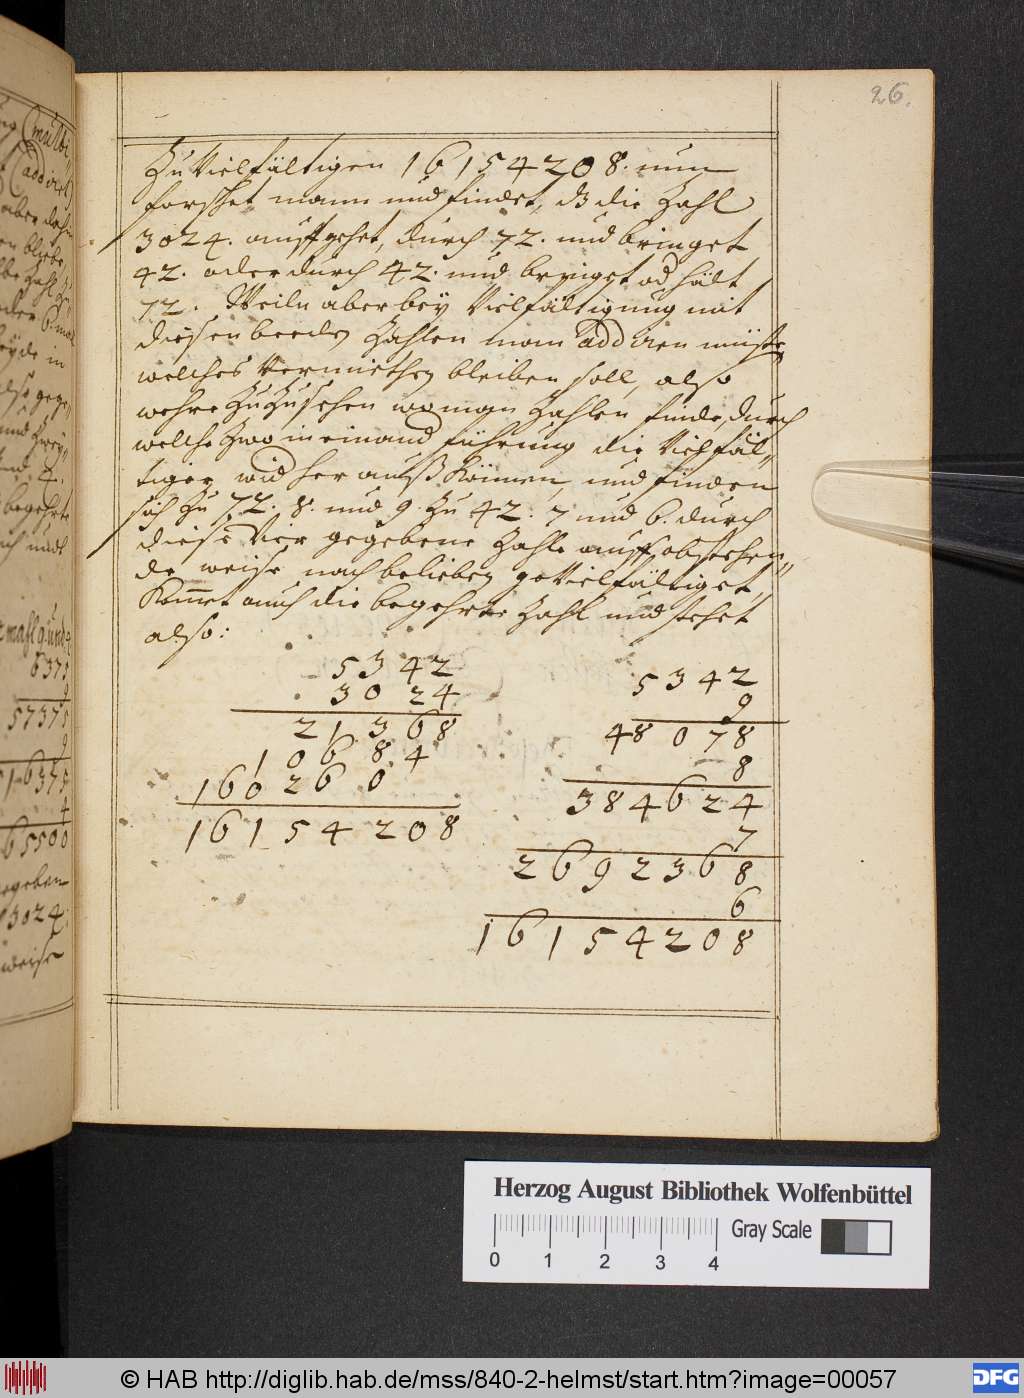 26.
Zu Vielfältigen 16154208. nun
forschet mann und findet, dß die Zahl
3024. auffgehet, durch 72. und bringet
42. oder durch 42. und bringet od hält
72. Weiln aber bey Vielfältigung mit
diesen beeden Zahlen man addiren müste,
welches vermiethen bleiben soll, also
wehre zuzusehen wo man Zahlen finde, durch
welche zwo in einand führung die Vielfäl„
tiger widher auß kommen, und finden
sich zu 72. 8. und 9. zu 42. 7 und 6. durch
diese vier gegebene Zahle auff obstehen„
de weise nach belieben gevielfältiget,
kommet auch die begehrte Zahl und stehet
also:
5342
3024
21368
10684
160260
16154208
5342
9
48078
8
384624
7
2692368
6
16154208
6375
9
57375
9
516375
4
65500
3024
Herzog August Bibliothek Wolfenbüttel
Gray Scale
0 1 2 3 4
© HAB http://diglib.hab.de/mss/840-2-helmst/start.htm?image=00057
DFG